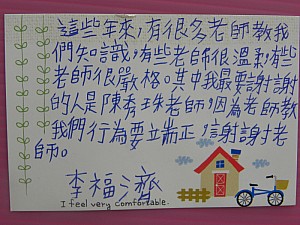 這些年來，有很多老師教我
們知識，有些老師很溫柔，有些
老師很嚴格。其中我最要謝謝
的人是陳秀珠老師，因為老師教
我們行為要立端正，謝謝老
師。
李福濟
I feel very comfortable.